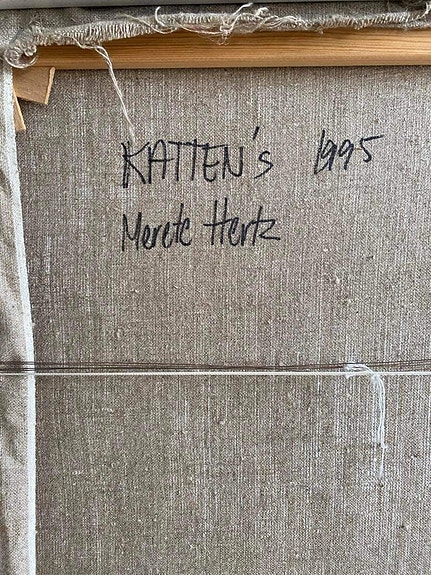 KATTEN's 1995
Merete Hertz